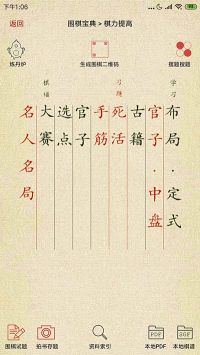 下午1:06
返回
围棋宝典 > 棋力提高
炼丹炉
生成围棋二维码
摆题搜题
布局·定式
学习
官子·中盘
古籍
习题
死活
手筋
官子
选点
棋谱
大赛
名人名局
PDF
SGF
围棋试题
拍书存题
资料索引
本地PDF
本地棋谱